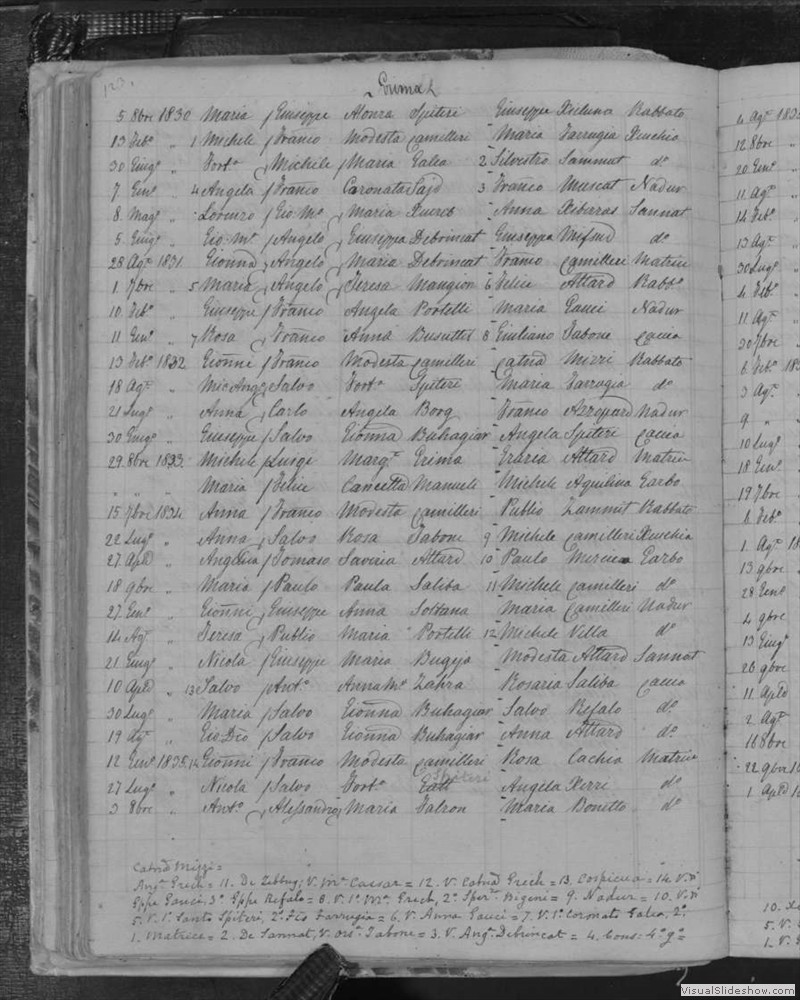 123.
Grima
5 8bre 1830 Maria / Giuseppe Alonza Spiteri Giuseppe Xicluna Rabbato
13 Feb° „ 1 Michele / Franco Modesta Camilleri - Maria Farrugia Xeuchia
30 Giug° „ Fort° / Michele / Maria Galea 2 Silvestro Sammut d°
7 Gen° „ 4 Angela / Franco Caronata Sajd 3 Franco Muscat Nadur
8 Mag° „ Lorenzo / Gio: Ma / Maria Xuereb - Anna Xiberras Sannat
5 Giug° „ Gio: Ma / Angelo / Giuseppa Debrincat Giuseppa Mifsud d°
28 Ag° 1831 Gionna / Angelo / Maria Debrincat Franco Camilleri Matrice
1 7bre „ 5 Maria / Angelo / Teresa Mangion 6 Felice Attard Rabb°
10 Feb° „ Giuseppe / Franco Angela Portelli - Maria Gauci Nadur
11 Gen° „ 7 Rosa / Franco Anna Busuttil 8 Giuliano Tabone Caccia
13 Feb° 1832 Gionni / Franco Modesta Camilleri - Catna Mizzi Rabbato
18 Ag° „ Mic:Ang° / Salvo Fort° Spiteri - Maria Farrugia d°
21 Lug° „ Anna / Carlo Angela Borg - Franco Azzopard Nadur
30 Giug° „ Giuseppe / Salvo Gionna Buhagiar - Angela Spiteri Caccia
29 8bre 1833 Michele / Luigi Marg° Grima - Grazia Attard Matrice
„ „ „ Maria / Felice Concetta Manuele Michele Aquilina Garbo
15 7bre 1834 Anna / Franco Modesta Camilleri - Publio Zammit Rabbato
22 Lug° „ Anna / Salvo Rosa Tabone 9 Michele Camilleri Xeuchia
27 Aple „ Angelica / Tomaso Saviria Attard 10 Paulo Mercieca Garbo
18 9bre „ Maria / Paulo Paula Saliba 11 Michele Camilleri d°
27 Gen° „ Gionni / Giuseppe Anna Soldana Maria Camilleri Nadur
14 Ag° „ Teresa / Publio Maria Portelli 12 Michele Vella d°
21 Giug° „ Nicola / Giuseppe Maria Bugeja Modesta Attard Sannat
10 Aple „ 13 Salvo / Ant° Anna Ma Zahra - Rosaria Saliba Caccia
30 Lug° „ Maria / Salvo Gionna Buhagiar Salvo Refalo d°
19 Ag° „ Gio Dio / Salvo Gionna Buhagiar - Anna Attard d°
12 Gen° 1835 14 Gionni / Franco Modesta Camilleri - Rosa Cachia Matrice
Spiteri
27 Lug° „ Nicola / Salvo Fort° Galt Angela Xerri d°
3 8bre „ Ant° / Alessandro / Maria Falzon - Maria Bonello d°
Catna Mizzi =
Ang° Grech = 11. De Zebbug; V. Ma Cassar = 12. V. Catna Grech = 13. Cospicua = 14. V.
Gppe Gauci, 3° Gppe Refalo = 8. V. 1° Ma Grech, 2° Bigeni = 9. Nadur = 10. V.
5. V. 1° Santo Spiteri, 2° Fco Farrugia = 6. V. Anna Gauci = 7. V. 1° Cormata Galea, 2°
1. Matrice = 2. De Sannat, V. Ors° Tabone = 3. V. Ang° Debrincat = 4. Cons: 4° g°
4 Ag° 183
12 8bre
20 Gen°
11 Ag°
14 Feb°
13 Ag°
30 Lug°
4 Feb°
11 Ag°
30 7bre
6 Feb° 18
3 Ag°
9 „
10 Lug°
18 Gen°
19 7bre
6 Feb°
1 Ag° 18
13 9bre
28 Gen°
4 9bre
13 Giug°
26 9bre
11 Aple
2 Ag°
16 8bre
22 9bre
1 Aple
10.
5. V.
1. V.
VisualSlideshow.com